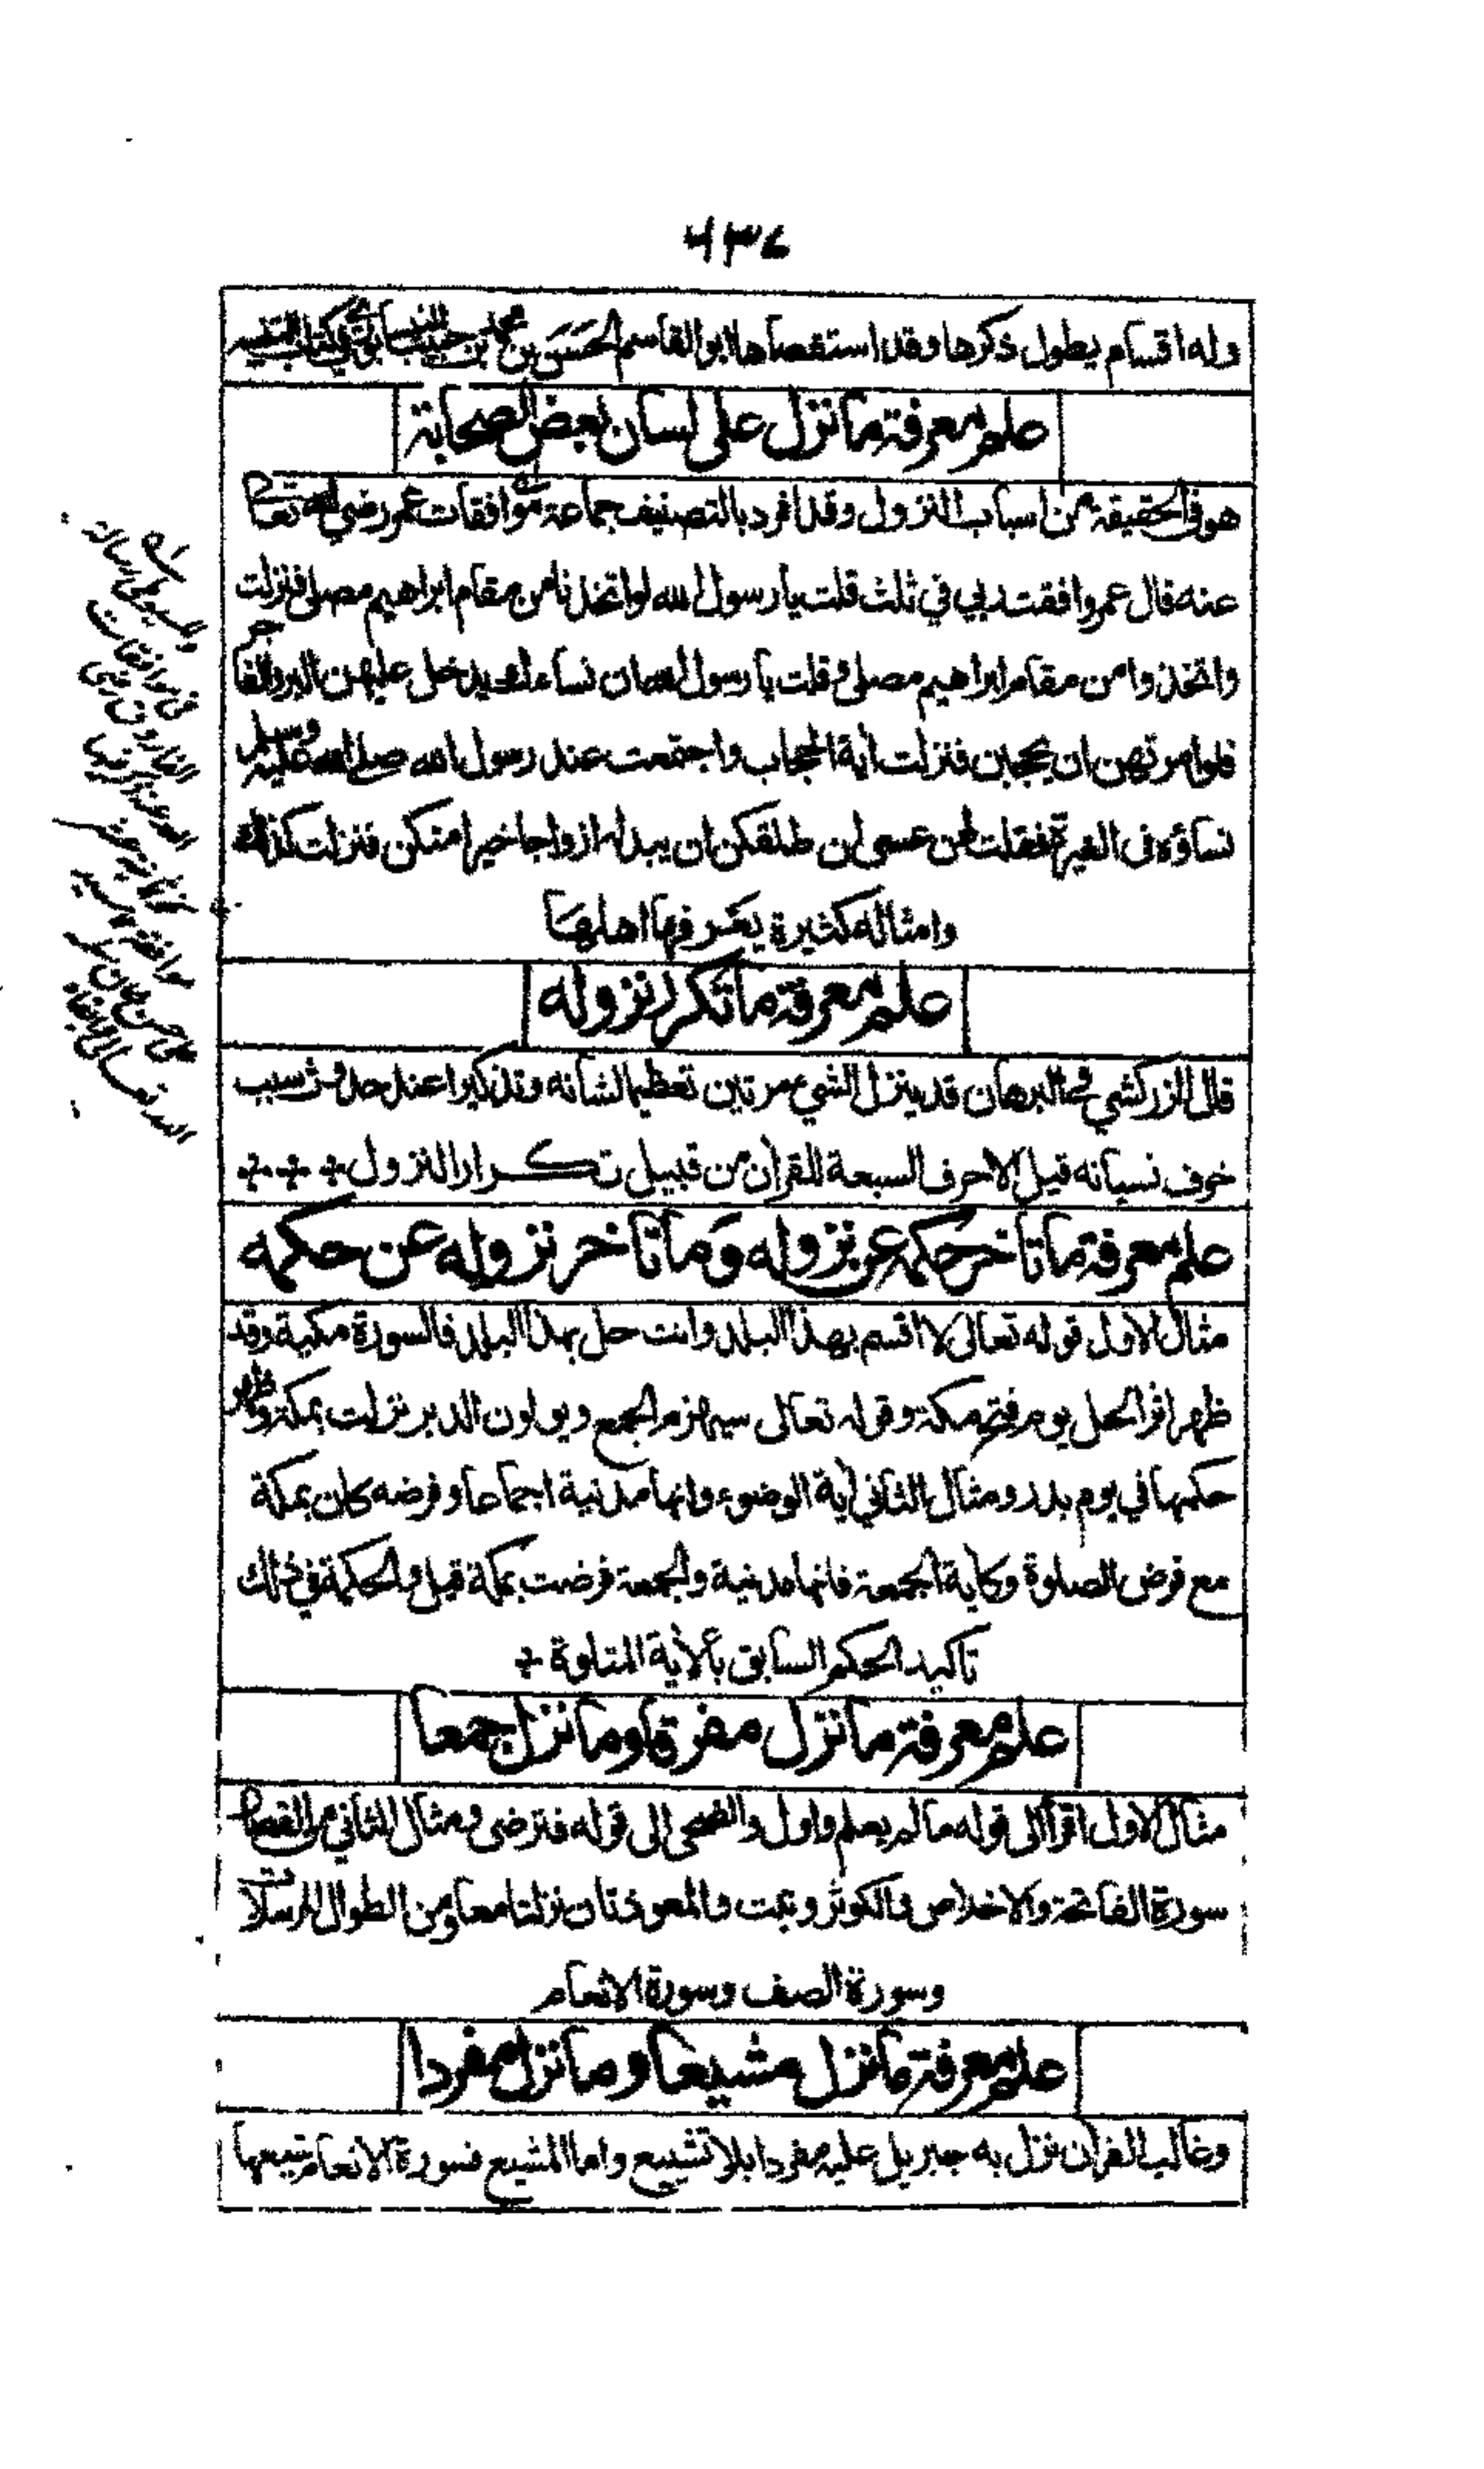 ۶۳۷
وله اقسام يطول ذكرها وقد استقصاها ابو القاسم الحسن بن محمد بن حبيب النيسابوري في كتاب التفسير
علم معرفة ما نزل على لسان بعض الصحابة
هو في الحقيقة من اسباب النزول وقد افرد بالتصنيف جماعة موافقات عمر رضي الله تعا
عنه قال عمر وافقت ربي في ثلث قلت يا رسول الله لو اتخذنا من مقام ابراهيم مصلى فنزلت
واتخذوا من مقام ابراهيم مصلى وقلت يا رسول الله ان نساءك يدخل عليهن البر والفاجر
فلو امرتهن ان يحجبن فنزلت اية الحجاب واجتمعت عند رسول الله صلى الله عليه وسلم
نساؤه في الغيرة فقلت لهن عسى ان طلقكن ان يبدله ازواجا خيرا منكن فنزلت كذلك
وامثاله كثيرة يعرفها اهلها
علم معرفة ما تكرر نزوله
قال الزركشي في البرهان قد ينزل الشيء مرتين تعظيما لشانه وتذكيرا عند حدوث سبب
خوف نسيانه قيل الاحرف السبعة للقرآن من قبيل تكرار النزول
علم معرفة ما تأخر حكمه عن نزوله وما تأخر نزوله عن حكمه
مثال الاول قوله تعالى لا اقسم بهذا البلد وانت حل بهذا البلد فالسورة مكية وقد
ظهر اثر الحل يوم فتح مكة وقوله تعالى سيهزم الجمع ويولون الدبر نزلت بمكة وظهر
حكمها في يوم بدر ومثال الثاني اية الوضوء وانها مدنية اجماعا وفرضه كان بمكة
مع فرض الصلوة وكاية الجمعة فانها مدنية والجمعة فرضت بمكة قيل والحكمة في ذلك
تاكيد الحكم السابق بالاية المتلوة
علم معرفة ما نزل مفرقا وما نزل جمعا
مثال الاول اقرأ الى قوله ما لم يعلم واول والضحى الى قوله فترضى ومثال الثاني من القصار
سورة الفاتحة والاخلاص والكوثر وتبت والمعوذتان نزلتا معا ومن الطوال المرسلات
وسورة الصف وسورة الانعام
علم معرفة ما نزل مشيعا وما نزل مفردا
وغالب القرآن نزل به جبريل عليه مفردا بلا تشييع واما المشيع فسورة الانعام شيعها